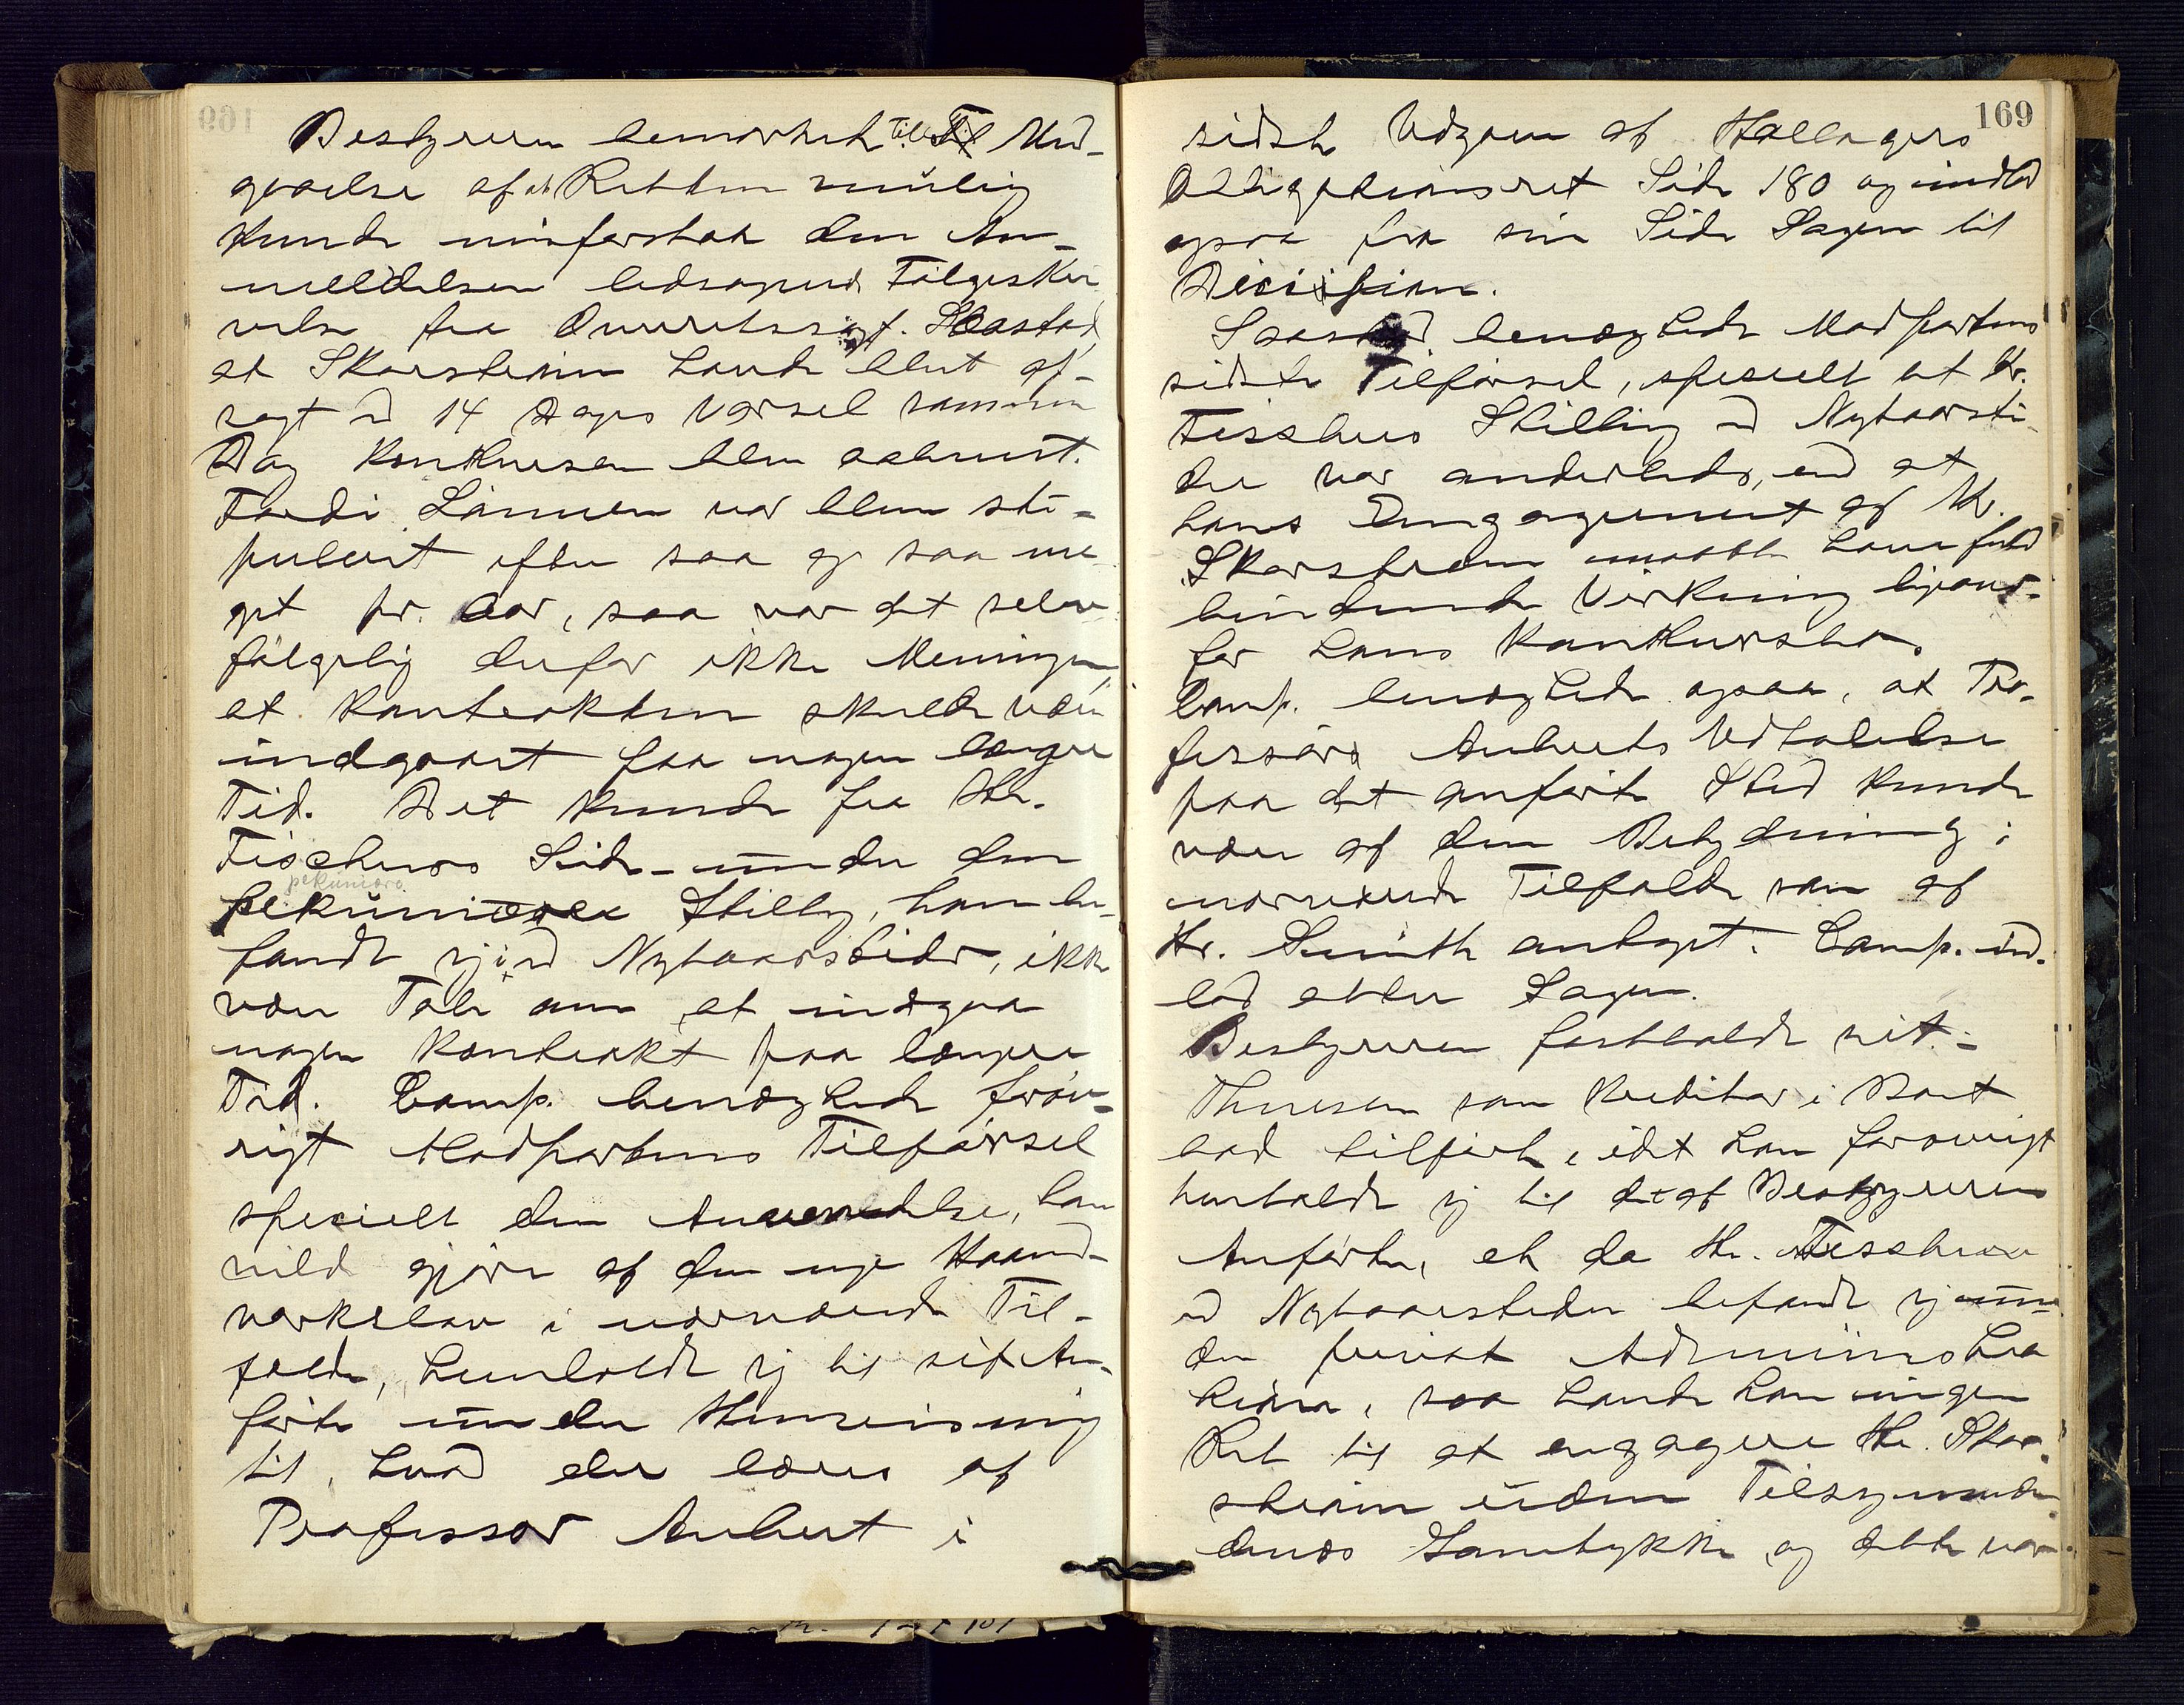 Bestyreren bemærkede: Til Und-
gaaelse af at Retten mulig
kunde misforstaa den An-
meldelsen ledsagende Følgeskri
velse fra Overretssagf. Saastad,
at Skarstrøm havde blit op-
sagt m 14 Dages Varsel samme
Dag Konkursen blev aabnet.
Fordi Lønnen var blevn sti-
puleret efter saa og saa me
get pr. Aar, saa var det selv
følgelig derfor ikke Meningen,
at Kontrakten skulde være
indgaaet paa nogen længere
Tid. Det kunde fra Hr.
Fischers Side under den
pekuniære
pekuniære Stilling, han be-
fandt sig i ved Nytaarstider, ikke
være Tale om at indgaa
nogen Kontrakt paa længere
Tid. Comp. benægtede forøv-
rigt Modpartens Tilførsel
specielt den Anvendelse, han
vild gjøre af den nye Haand-
verkslov i nærværende Til-
fælde, henholdt sig til sit An-
førte under Henvisning
til, hvad der læres af
Professor Aubert i
169
sidste Udgave af Hallagers
Obligationsret Side 180 og indlod
ogsaa fra sin Side Sagen til
Decision.
Saastad benægtede Modpartens
sidste Tilførsel, specielt at Hr.
Fisschers Stilling ved Nytaarsti
der var anderledes, end at
hans Engagement af Hr.
Skarstrøm maatte have fuld
bindende Virkning ligeover-
for hans Konkursbo.
Comp. benægtede ogsaa, at Pro-
fessors Auberts Udtalelse
paa det anførte Sted kunde
være af den Betydning i
nærværende Tilfælde som af
Hr. Smith antaget. Comp. ind-
lod atter Sagen.
Bestyreren fastholdt sit
Thuesen som Kreditor i Boet
bad tilført, idet han forøvrigt
henholdt sig til det af Bestyreren
Anførte, at da Hr. Fisscher
ved Nytaarstider befandt sig un-
der privat Administra
tion, saa havde han ingen
Ret til at engagere Hr. Skar-
strøm uden Tilsynsmæn
denes Samtykke og dette var